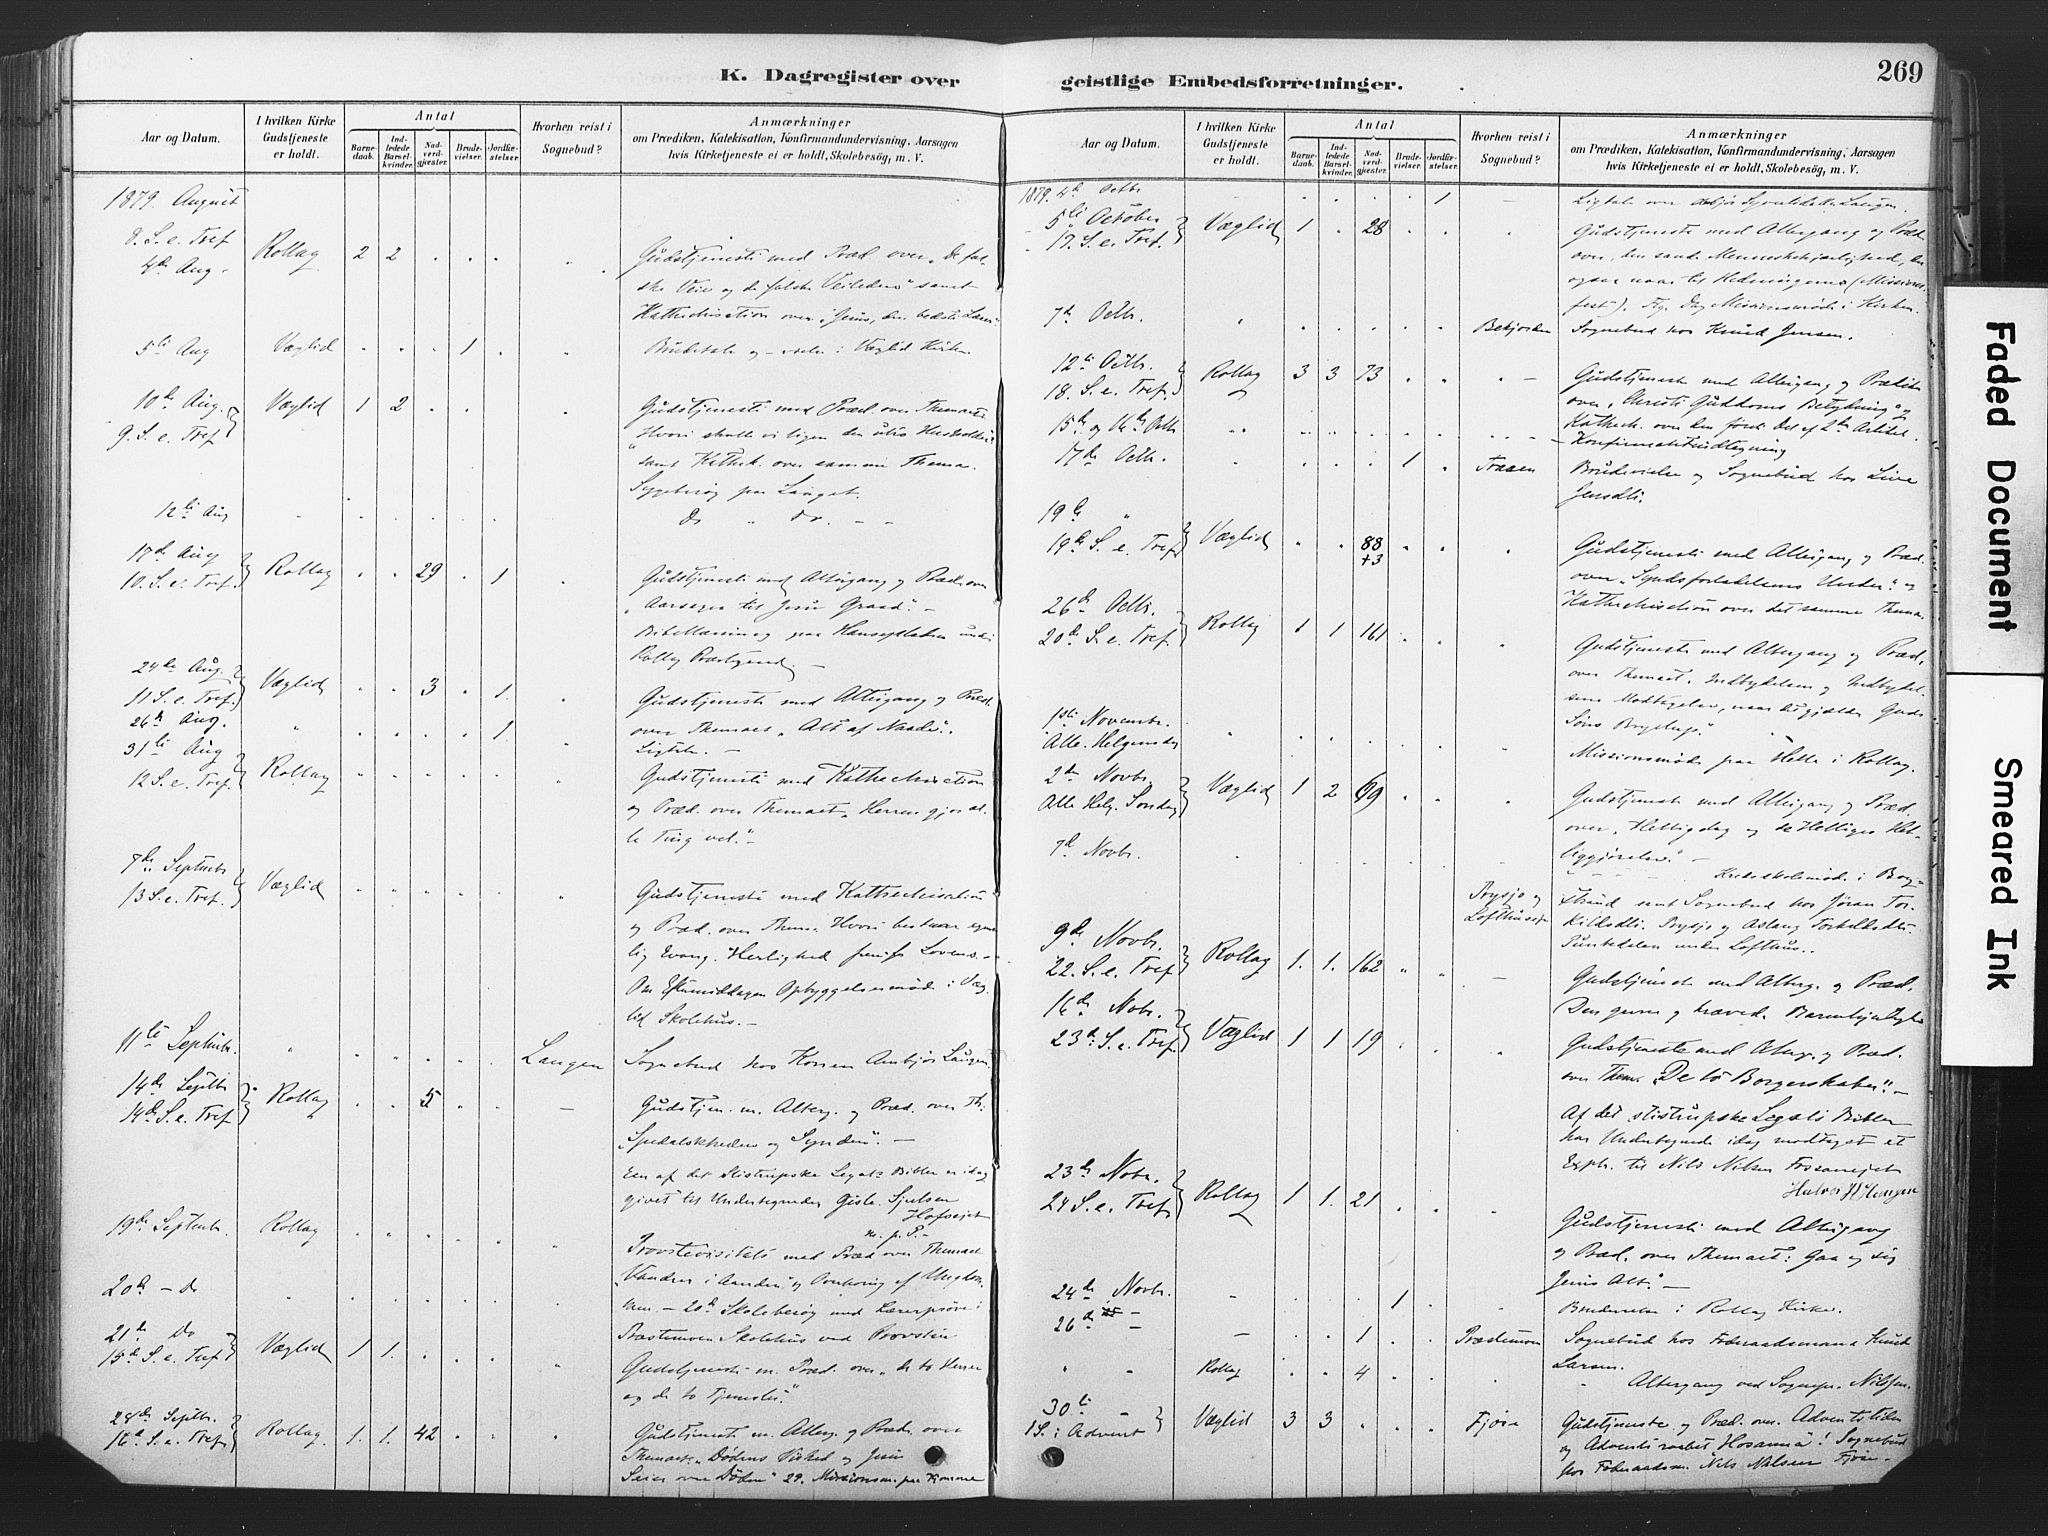 K. Dagregister over geistlige Embedsforretninger.
269
Aar og Datum.
I hvilken Kirke Gudstjeneste er holdt.
Antal
Barne-daab.
Ind-ledede Barsel-kvinder.
Nad-verd-gjester.
Brude-vielser.
Jordfæ-stelser.
Hvorhen reist i Sognebud?
Anmærkninger
om Prædiken, Katekisation, Konfirmandundervisning, Aarsagen
hvis Kirketjeneste ei er holdt, Skolebesøg, m. V.
1879. August
8. S. e. Tref
4de Aug. Rollag 2 2 Gudstjeneste med Præd. over "De fal-
ske Veie og de falske Veiledere" samt
Kathechisation over "Jesus, den bedste Lærer"
5te Aug Væglid 1 Brudetale og -vielse i Væglid Kirke
10de Aug. Væglid 1 2 Gudstjeneste med Præd. over Themaet:
9. S. e. Tref "Hvori skulle vi ligne den utro Husholder"
samt Kathek. over samme Thema.
Sygebesøg paa
12te Aug Do " do. - -
17de Aug
10. S. e. Tref. Rollag 29 1 Gudstjeneste med Altergang og Præd. over
"Aarsagen til Jesu Graad". -
Bibellæsning paa under
Rollag
24de Aug.
11 S. e. Tref. Væglid 3 1. Gudstjeneste med Altergang og Præd.
26de Aug. 1 over Themaet "Alt af Naade".
Ligtale. -
31te Aug
12 S. e. Tref. Rollag Gudstjeneste med Kathechisation
og Præd. over Themaet "Herren gjør al-
le Ting vel". -
7de Septembr
13 S. e. Tref. Væglid Gudstjeneste med Kathechisation
og Præd. over Thema. Hvori bestaar egent-
lig Evang. Herlighed fremfor Lovens. -
Om Eftermiddagen Opbyggelsesmøde i Væg-
lid Skolehus. -
11te Septembr. Langen Sognebud hos Konen Langen
14de Septbr
14de S. e. Tref Rollag 5 - Gudstjen. m. Alterg. og Præd. over Th:
"Spedalskheden og Synden". -
Een af det Stistrupske Legats Bibler er idag
givet til Undertegnede Gisle
Hofseiet
m. p. P. -
19de Septembr. Rollag Provstevisitats med Præd over Themaet
"Vandrer i Aanden" og Overhøring af Ungdom-
20de - do men. - 20de Skolebesøg med Lærerprøve i
Præstemoen Skolehus ved Provsten
21de Do
15de S. e. Tref Væglid 1 1. Gudstjeneste m. Præd. over "de to Herrer
og de to Tjenester"
28de Septbr.
16de S. e. Tref Rollag. 1. 1. 42 Gudstjeneste m. Alterg. og Præd. over
Themaet "Dødens og Jesu
Seier over Døden" 29.
Aar og Datum.
I hvilken Kirke Gudstjeneste er holdt.
Antal
Barne-daab.
Ind-ledede Barsel-kvinder.
Nad-verd-gjester.
Brude-vielser.
Jordfæ-stelser.
Hvorhen reist i Sognebud?
Anmærkninger
om Prædiken, Katekisation, Konfirmandundervisning, Aarsagen
hvis Kirketjeneste ei er holdt, Skolebesøg, m. V.
1879. 4de Octbr - 1 - Ligtale over Langen.
5te October
17. S. e. Tref. Væglid 1 28 Gudstjeneste med Altergang og Præd
over "den sande Menneskekjærlighed, der
ogsaa naar til Hedningerne (Missions-
fest). Missionsmøde i Kirken
7de Octbr. Bekjorden Sognebud hos Knud Jensen.
12te Octbr.
18. S. e. Tref. Rollag 3 3 73 Gudstjeneste med Altergang og Prædiken
over "Christi Guddoms Betydning" og
15de og 16de Octbr Kathech. over den første Del af 2den Artikel.
Konfirmation
17de Octbr. 1 Traaen Brudevielse og Sognebud hos Live
Jensdtr.
19de "
19de S. e. Tref Væglid 88
+3 Gudstjeneste med Altergang og Præd.
over "Syndsforladelsens Under" og
Kathechisation over det samme Thema.
26de Octbr.
20de S. e. Tref. Rollag 1 1 161 Gudstjeneste med Altergang og Præd.
over Themaet. Indbydelsen og Indbydel-
sens Modtagelse, naar det gjælder Guds
Søns Bryllup".
1ste Novembr.
Alle Helgensdag Missionsmøde paa Helle i Rollag.
2den Novbr.
Alle Helg. Søndag Væglid 1 2 69 Gudstjeneste med Altergang og Præd.
over "Helligdag og de Helliges Hel-
liggjørelse". -
7de Novbr. Brysjø og
Lofthuseje Kredsskolemøde i Borg-
strand samt Sognebud hos Jøran Tor-
kildsdtr. Brysjø og Aslaug Torkildsdtr.
under Lofthus..
9de Novbr.
22. S. e. Tref Rollag 1. 1. 162 - Gudstjeneste med Alterg. og Præd.
16de Nobr. Barmhjertighed
23de S. e. Tref Væglid 1 1 19 Gudstjeneste med Alterg. og Præd.
over Them. "De to Borgerskaber". -
Af det stistrupske Legats Bibler
har Undertegnede idag modtaget et
Explr. til Nils Nilsen Fossaneiet
Halvor
23de Nobr.
24 S. e. Tref Rollag 1 1. 21 Gudstjeneste med Altergang
og Præd. over Themaet: Gaa og sig
Jesus Alt." -
24de Novbr. 1 Brudevielse i Rollag Kirke.
26de - 1 Prædemoen Sognebud hos Foderaadsmand Knud
Larsen.
" - Rollag 4 Altergang ved Sognepr. Nilssen.
30te -
1 S. i Advent Væglid 3 3 Fjøse Gudstjeneste og Præd. over Adventstiden
og Adventsraabet Hosianna! Sognebud
hos Foderaadsm. Nils Nilsen Fjøse. -
Faded Document
Smeared Ink